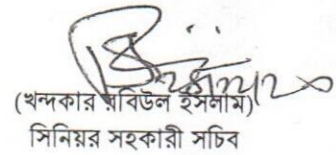 (খন্দকার রবিউল ইসলাম)
সিনিয়র সহকারী সচিব